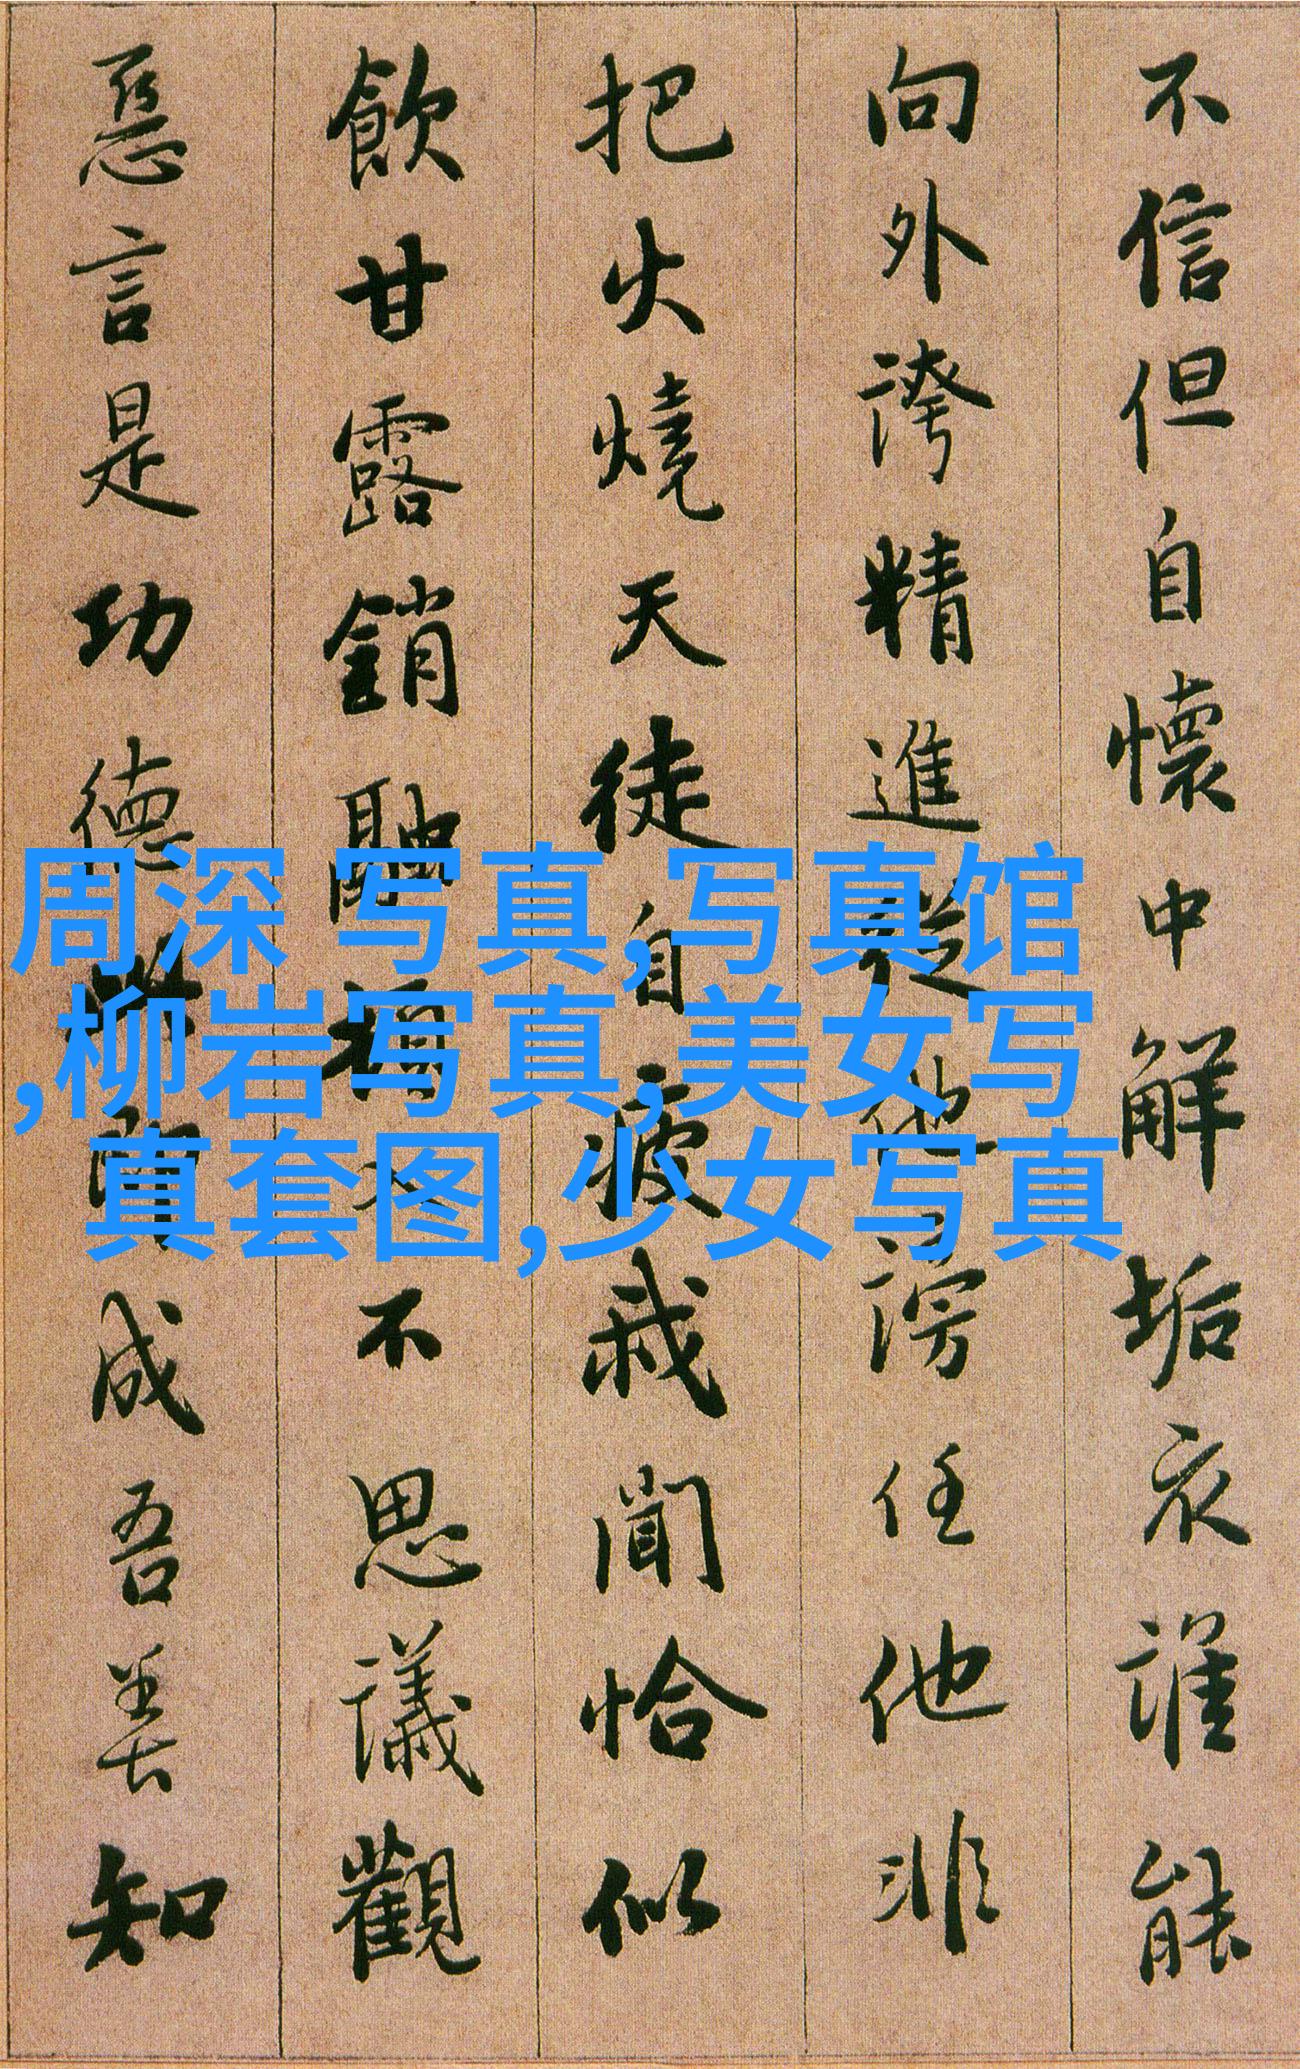 不信但自懷中解垢衣誰能
向外誇精進從他謗任他非
把火燒天徒自疲我聞恰似
飲甘露銷融不思議觀
惡言是功德成吾善知
周深 写真,写真馆
,柳岩写真,美女写
真套图,少女写真